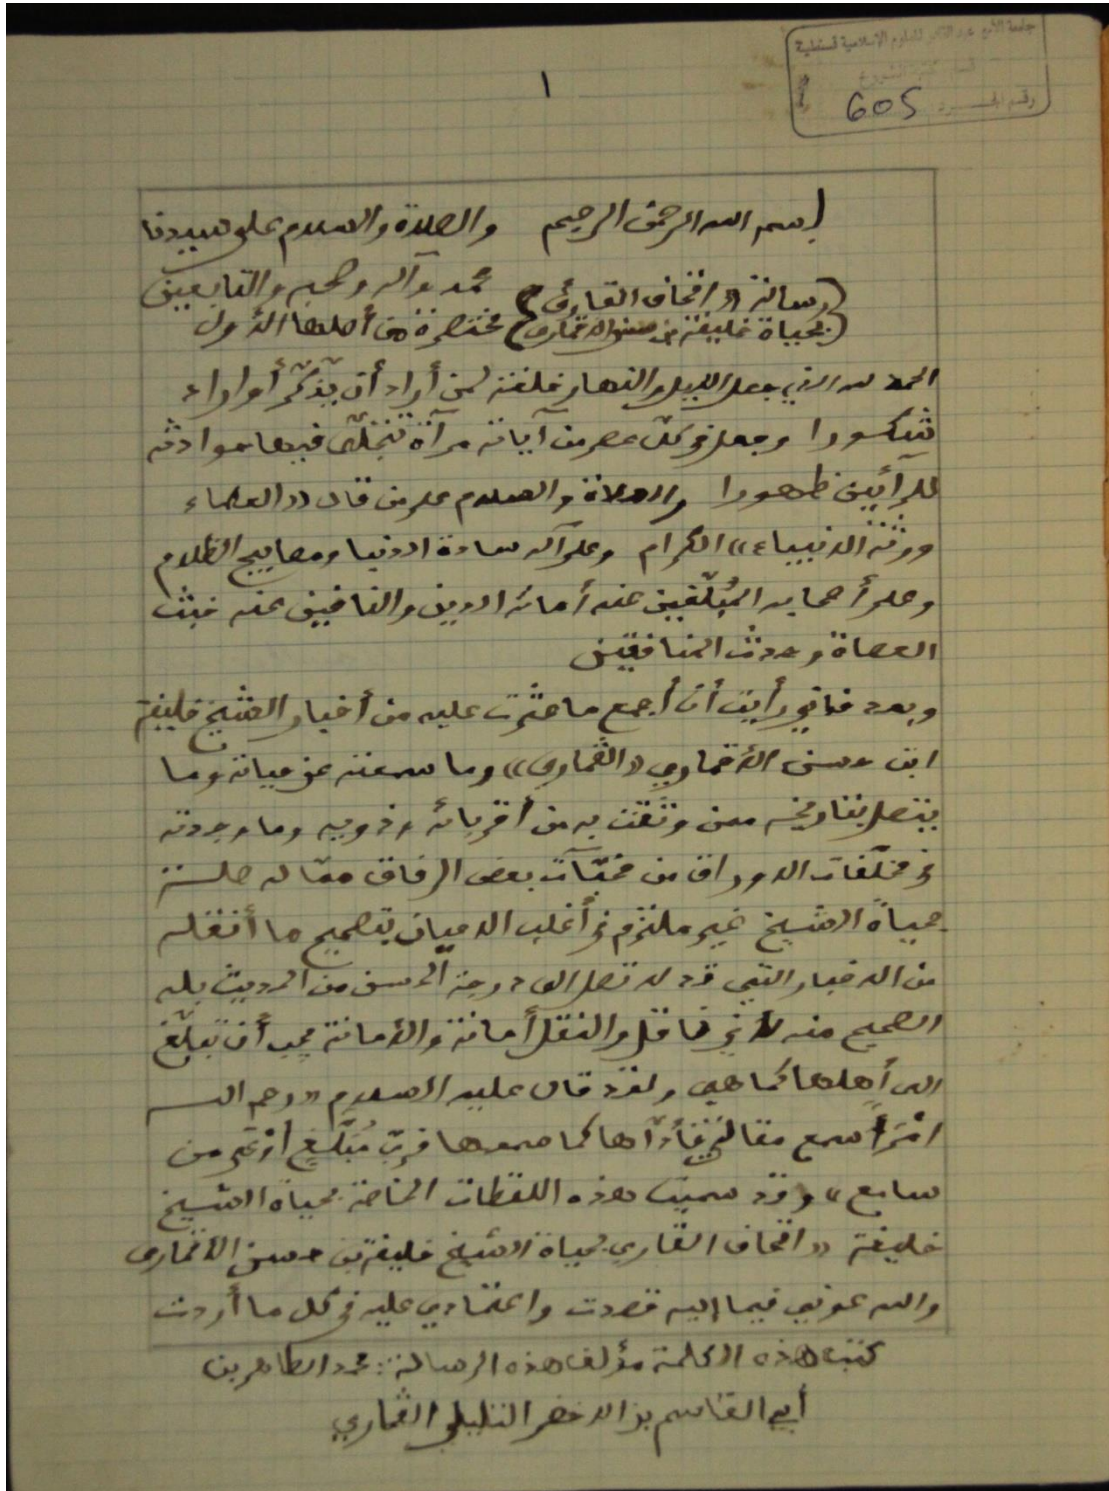 جامعة الأمير عبد القادر للعلوم الإسلامية قسنطينة
605
١
بسم الله الرحمن الرحيم والصلاة والسلام على سيدنا
محمد وآله وصحبه والتابعين
(رسالة «اتحاف القارئ
بحياة خليفة بن حسن القماري) مختصرة من أصلها الأول
الحمد لله الذي جعل الليل والنهار خلفة لمن أراد أن يذّكّر أو أراد
شكورا وجعل في كلّ عصر من آياته مرآة تتجلّى فيها حوادثه
للرآئين ظهورا والصلاة والسلام على من قال «العلماء
ورثة الأنبياء» الكرام وعلى آله سادة الدنيا ومصابيح الظلام
وعلى أصحابه المُبلّغين عنه أمانة الدين والنافين عنه خبث
العصاة وحدث المنافقين
وبعد فإني رأيت أن أجمع ما عثرت عليه من أخبار الشيخ خليفة
ابن حسن الأقماري «القماري» وما سمعته عن حياته وما
يتصل بتاريخه ممن وثقت به من أقربائه وذويه وما وجدته
في مخلّفات الأوراق من مخبّآت بعض الرفاق ممّا له صلة
بحياة الشيخ غير ملتزم في أغلب الأحيان بتصحيح ما أنقله
من الأخبار التي قد لا تصل إلى درجة الحسن من الحديث بله
الصحيح منه لأني ناقل والنقل أمانة والأمانة يجب أن تبلّغ
إلى أهلها كما هي ولقد قال عليه السلام «رحم الله
امْرَأً سمع مقالتي فأدّاها كما سمعها فربّ مُبَلَّغٍ أوْعَى من
سامع» وقد سميت هذه اللقطات الخاصة بحياة الشيخ
خليفة «اتحاف القاري بحياة الشيخ خليفة بن حسن الأقماري
والله عوني فيما إليه قصدت واعتمادي عليه في كل ما أردت
كتب هذه الكلمة مؤلف هذه الرسالة: محمد الطاهر بن
أبي القاسم بن الأخضر التليلي القماري